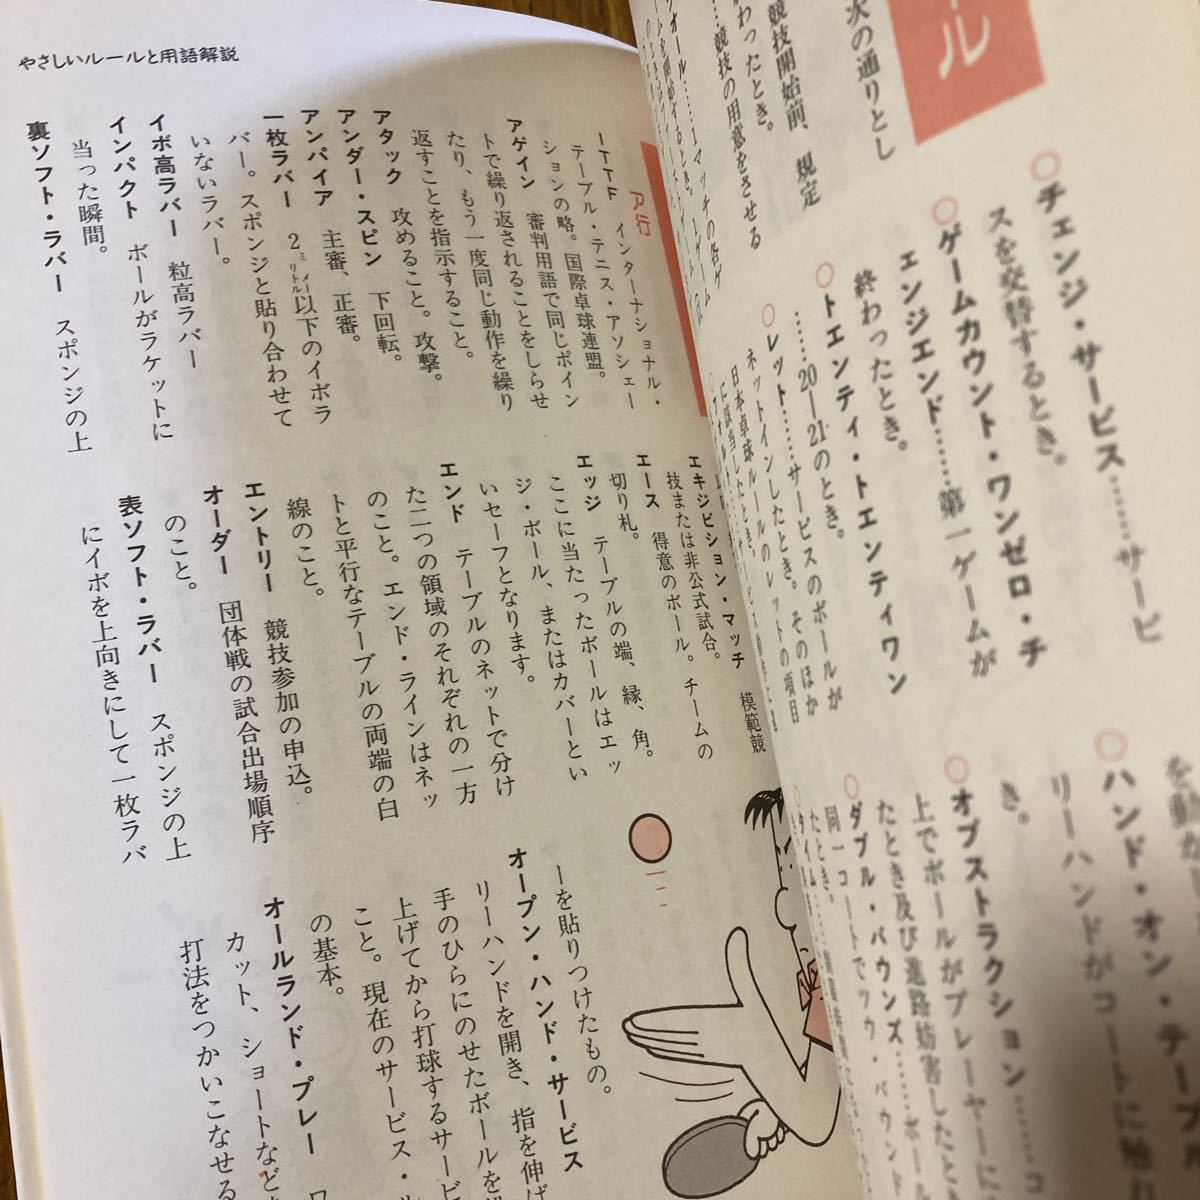 ル
次の通りとし
競技開始前、規定
わったとき。
競技の用意をさせる
○チェンジ・サービス……サービ
スを交替するとき。
○ゲームカウント・ワンゼロ・チ
ェンジエンド……第一ゲームが
終わったとき。
○トエンティ・トエンティワン
……20―21のとき。
○レット……サービスのボールが
ネットインしたとき。そのほか
日本卓球ルールのレットの項目
に該当したとき。
○ハンド・オン・テーブル
リーハンドがコートに触れ
き。
○オブストラクション……コ
上でボールがプレーヤーに
たとき及び進路妨害したとき
○ダブル・バウンズ……ボール
同一コートでツウ・バウンド
たとき。
やさしいルールと用語解説
ア行
ITTF　インターナショナル・
テーブル・テニス・アソシェー
ションの略。国際卓球連盟。
アゲイン　審判用語で同じポイン
トで繰り返されることをしらせ
たり、もう一度同じ動作を繰り
返すことを指示すること。
アタック　攻めること。攻撃。
アンダー・スピン　下回転。
アンパイア　主審、正審。
一枚ラバー　2ミリメートル以下のイボラ
バー。スポンジと貼り合わせて
いないラバー。
イボ高ラバー　粒高ラバー
インパクト　ボールがラケットに
当った瞬間。
裏ソフト・ラバー　スポンジの上
エキジビション・マッチ　模範競
技または非公式試合。
エース　得意のボール。チームの
切り札。
エッジ　テーブルの端、縁、角。
ここに当ったボールはエッ
ジ・ボール、またはカバーとい
いセーフとなります。
エンド　テーブルのネットで分け
た二つの領域のそれぞれの一方
のこと。エンド・ラインはネッ
トと平行なテーブルの両端の白
線のこと。
エントリー　競技参加の申込。
オーダー　団体戦の試合出場順序
のこと。
表ソフト・ラバー　スポンジの上
にイボを上向きにして一枚ラバ
ーを貼りつけたもの。
オープン・ハンド・サービス
リーハンドを開き、指を伸ば
手のひらにのせたボールを
上げてから打球するサービ
こと。現在のサービス・ル
の基本。
オールランド・プレー
カット、ショートなど
打法をつかいこなせる